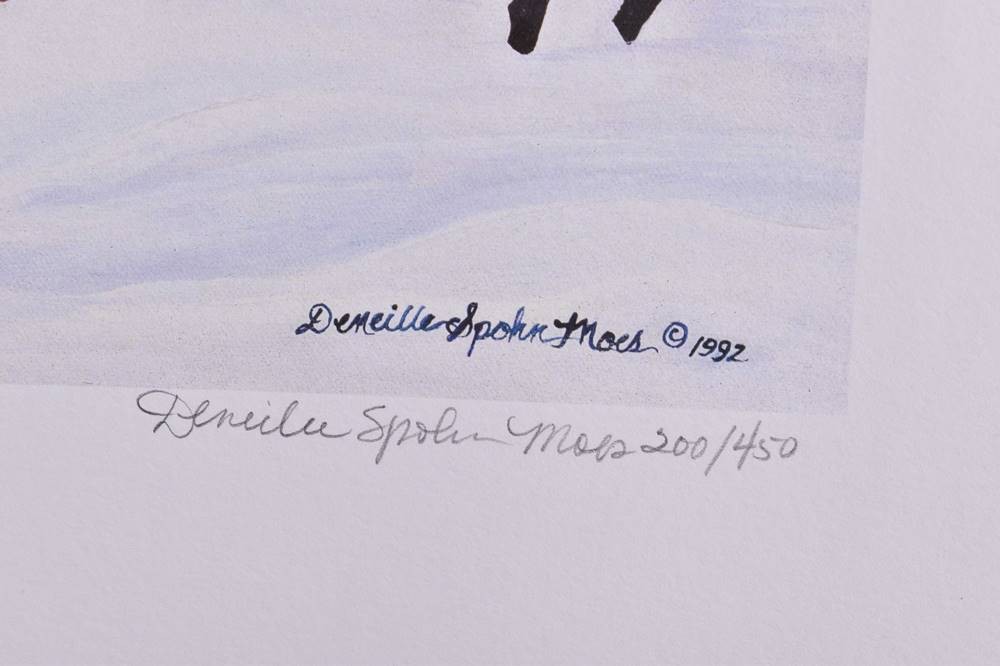 Deneille Spohn Moes © 1992
Deneille Spohn Moes 200/450